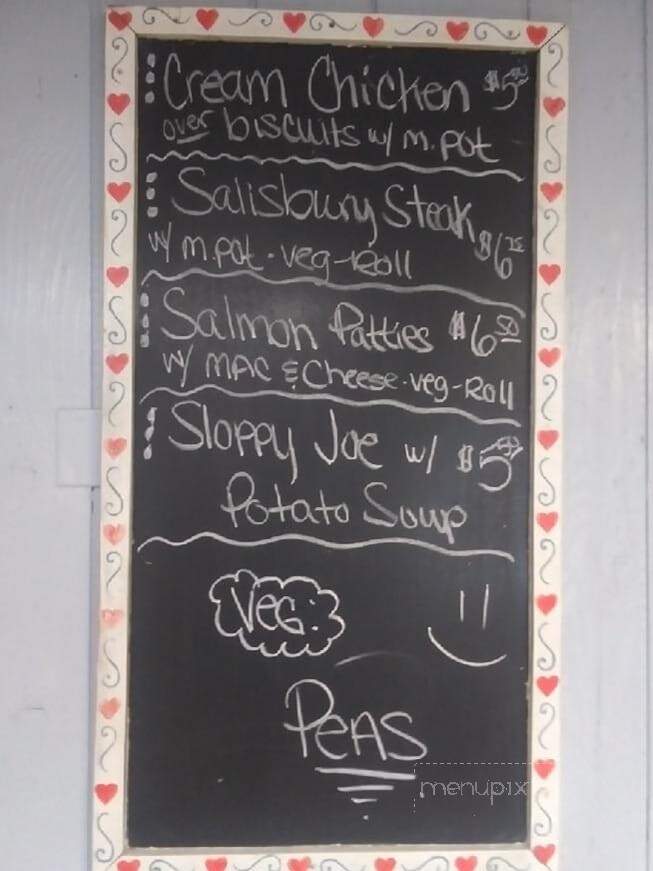 Cream Chicken $5
over biscuits w/ m.pot
Salisbury Steak
w/ m.pot. veg-Roll $6
Salmon Patties $6 50
w/ MAC & Cheese. veg-Roll
Sloppy Joe w/ $5
Potato Soup
Veg:
PEAS
menupix